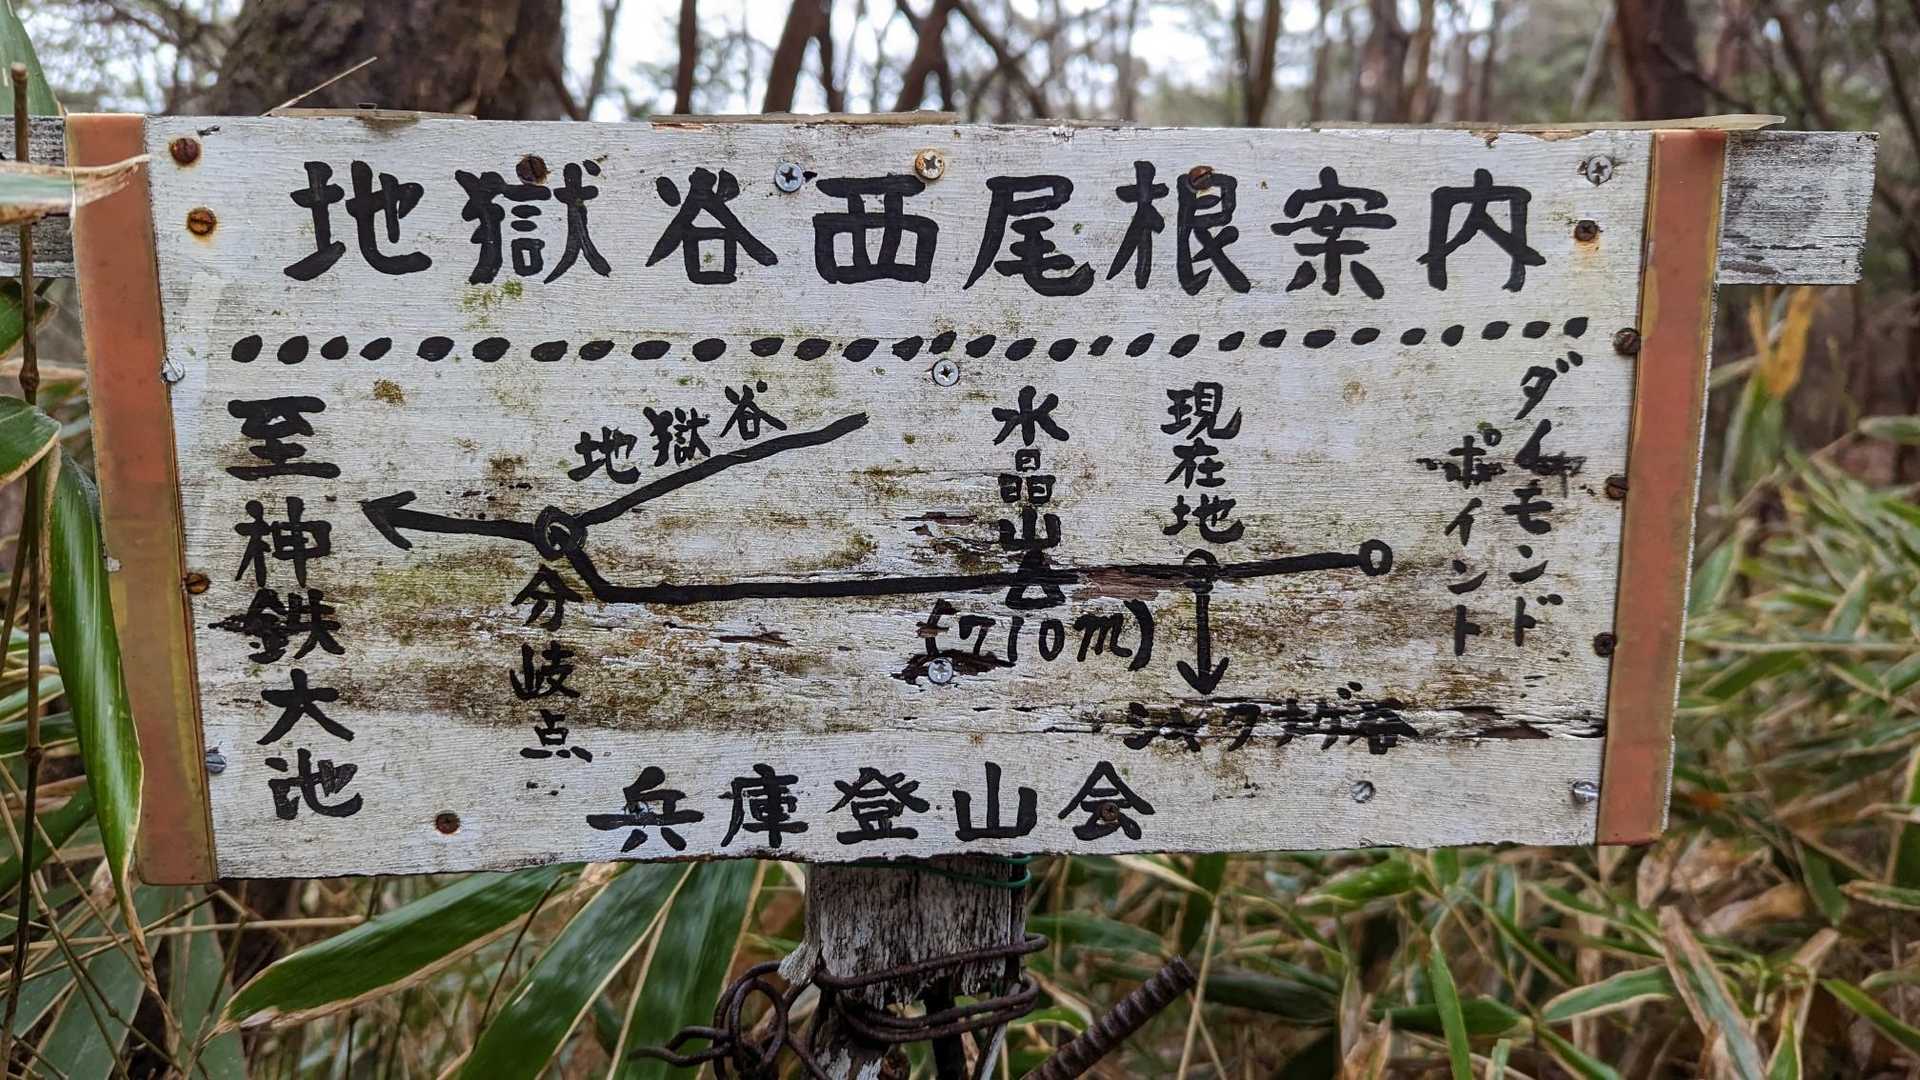 地獄谷西尾根案内
ダイヤモンド
ポイント
現在地
水晶山
(710m)
地獄谷
分岐点
至神鉄大池
シャクナゲ谷
兵庫登山会